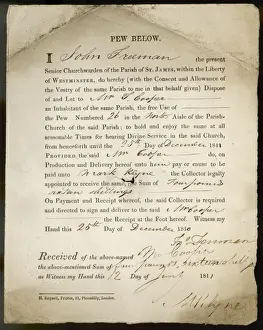 PEW BELOW.
I John Freeman the present
Senior Churchwarden of the Parish of ST. JAMES, within the Liberty
of WESTMINSTER, do hereby (with the Consent and Allowance of the
Vestry of the same Parish to me in that behalf given) Dispose
of and Let to Mr Cooper
an Inhabitant of the same Parish, the free Use of
the Pew Numbered 26 in the North Aisle of the Parish-
Church of the said Parish; to hold and enjoy the same at all
reasonable Times for hearing Divine Service in the said Church,
from henceforth until the 25th Day of December 1811
PROVIDED the said Mr Cooper do, on
Production and Delivery hereof unto him pay or cause to be paid
unto Mark Kilyne the Collector legally
appointed to receive the same, the Sum of Four pounds
sixteen shillings
On Payment and Receipt whereof, the said Collector is required
and directed to sign and deliver to the said Mr Cooper
the Receipt at the Foot hereof. Witness my
Hand this 25th Day of December 1810
Freeman
Received of the above-named Mr Cooper
the above-mentioned Sum of four pounds sixteen shillgs
as Witness my Hand this 12 Day of 1811
H. Reynell, Printer, 21, Piccadilly, London.